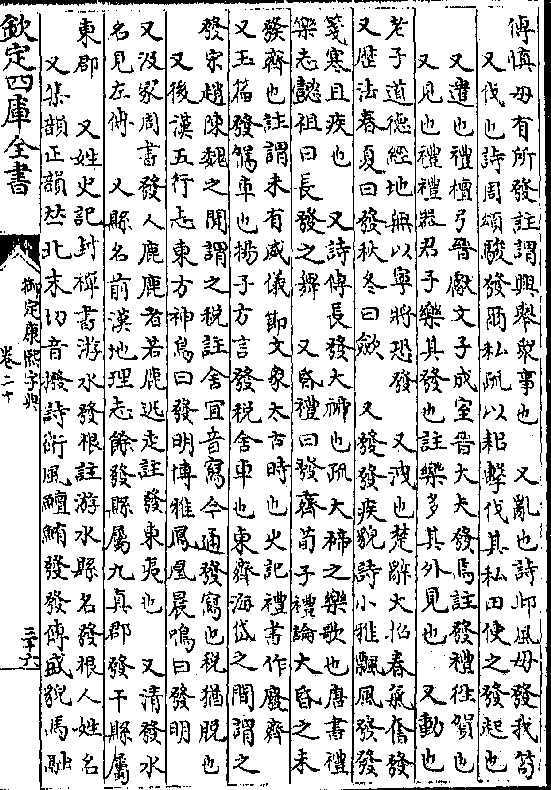 傳慎毋有所發註謂興舉衆事也　又亂也詩邶風毋發我笱
又伐也詩周頌駿發爾私疏以耜擊伐其私田使之發起也
又遣也禮檀弓晉獻文子成室晉大夫發焉註發禮往賀也
又見也禮禮器君子樂其發也註樂多其外見也　又動也
老子道德經地無以寧將恐發　又洩也楚辭大招春氣奮發
又歴法春夏曰發秋冬曰斂　又發發疾貌詩小雅飄風發發
箋寒且疾也　又詩傳長發大禘也疏大禘之樂歌也唐書禮
樂志懿祖曰長發之舞　又昏禮曰發齊荀子禮論大昏之未
發齊也註謂未有威儀節文象太古時也史記禮書作廢齊
又玉篇發駕車也揚子方言發稅舍車也東齊海岱之間謂之
發宋趙陳魏之間謂之稅註舍宜音寫今通發寫也稅猶脫也
又後漢五行志東方神鳥曰發明博雅鳳凰晨鳴曰發明
又汲冢周書發人鹿鹿者若鹿迅走註發東夷也　又清發水
名見左傳　又縣名前漢地理志餘發縣屬九真郡發干縣屬
東郡　又姓史記封禪書游水發根註游水縣名發根人姓名
又集韻正韻𠀤北末切音撥詩衛風鱣鮪發發傳盛貌馬融
欽定四庫全書
御定康熙字典
卷二十
三十六